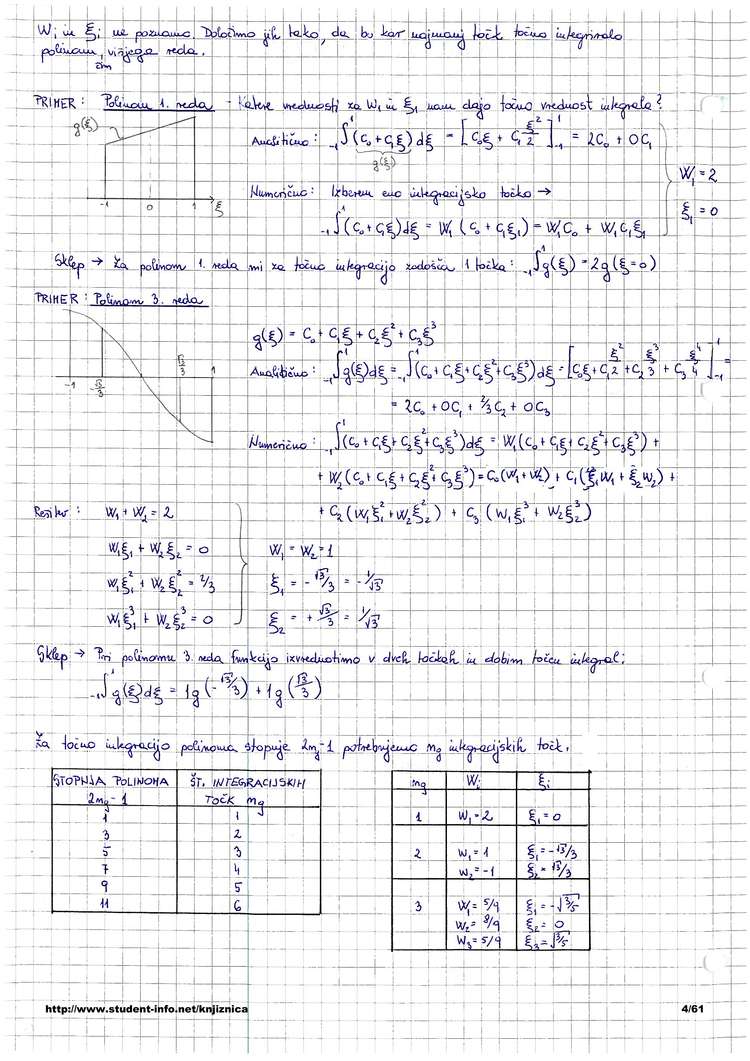 Wi in ξi ne poznamo. Določimo jih tako, da bo kar najmanj točk točno integriralo
polinom, višjega reda.
čim
PRIMER: Polinom 1. reda - Katere vrednosti za W₁ in ξ₁ nam dajo točno vrednost integrala?
g(ξ)
-1 0 1 ξ
Analitično: ₋₁∫¹(C₀+C₁ξ)dξ = [C₀ξ + C₁ ξ²/2]₋₁¹ = 2C₀ + 0C₁
g(ξ)
W₁ = 2
Numerično: Izberem eno integracijsko točko →
ξ₁ = 0
₋₁∫¹(C₀+C₁ξ)dξ = W₁(C₀+C₁ξ₁) = W₁C₀ + W₁C₁ξ₁
Sklep → Za polinom 1. reda mi za točno integracijo zadošča 1 točka: ₋₁∫¹g(ξ) = 2g(ξ=0)
PRIMER: Polinom 3. reda
-1 √3/3 √3/3 1
g(ξ) = C₀ + C₁ξ + C₂ξ² + C₃ξ³
Analitično: ₋₁∫¹g(ξ)dξ = ₋₁∫¹(C₀+C₁ξ+C₂ξ²+C₃ξ³)dξ = [C₀ξ+C₁ ξ²/2 + C₂ ξ³/3 + C₃ ξ⁴/4]₋₁¹ =
= 2C₀ + 0C₁ + 2/3C₂ + 0C₃
Numerično: ₋₁∫¹(C₀+C₁ξ+C₂ξ²+C₃ξ³)dξ = W₁(C₀+C₁ξ+C₂ξ²+C₃ξ³) +
+ W₂(C₀+C₁ξ+C₂ξ²+C₃ξ³) = C₀(W₁+W₂) + C₁(ξ₁W₁+ξ₂W₂) +
+ C₂(W₁ξ₁²+W₂ξ₂²) + C₃(W₁ξ₁³+W₂ξ₂³)
Rešitev: W₁ + W₂ = 2
W₁ξ₁ + W₂ξ₂ = 0 W₁ = W₂ = 1
W₁ξ₁² + W₂ξ₂² = 2/3 ξ₁ = -√3/3 = -1/√3
W₁ξ₁³ + W₂ξ₂³ = 0 ξ₂ = +√3/3 = 1/√3
Sklep → Pri polinomu 3. reda funkcijo izvrednotimo v dveh točkah in dobim točen integral:
₋₁∫¹g(ξ)dξ = 1g(-√3/3) + 1g(√3/3)
Za točno integracijo polinoma stopnje 2mg-1 potrebujemo mg integracijskih točk.
STOPNJA POLINOMA ŠT. INTEGRACIJSKIH
2mg-1 TOČK mg
1 1
3 2
5 3
7 4
9 5
11 6
mg Wi ξi
1 W₁=2 ξ₁=0
2 W₁=1 ξ₁=-√3/3
W₂=-1 ξ₂=√3/3
3 W₁=5/9 ξ₁=-√3/5
W₂=8/9 ξ₂=0
W₃=5/9 ξ₃=√3/5
http://www.student-info.net/knjiznica 4/61